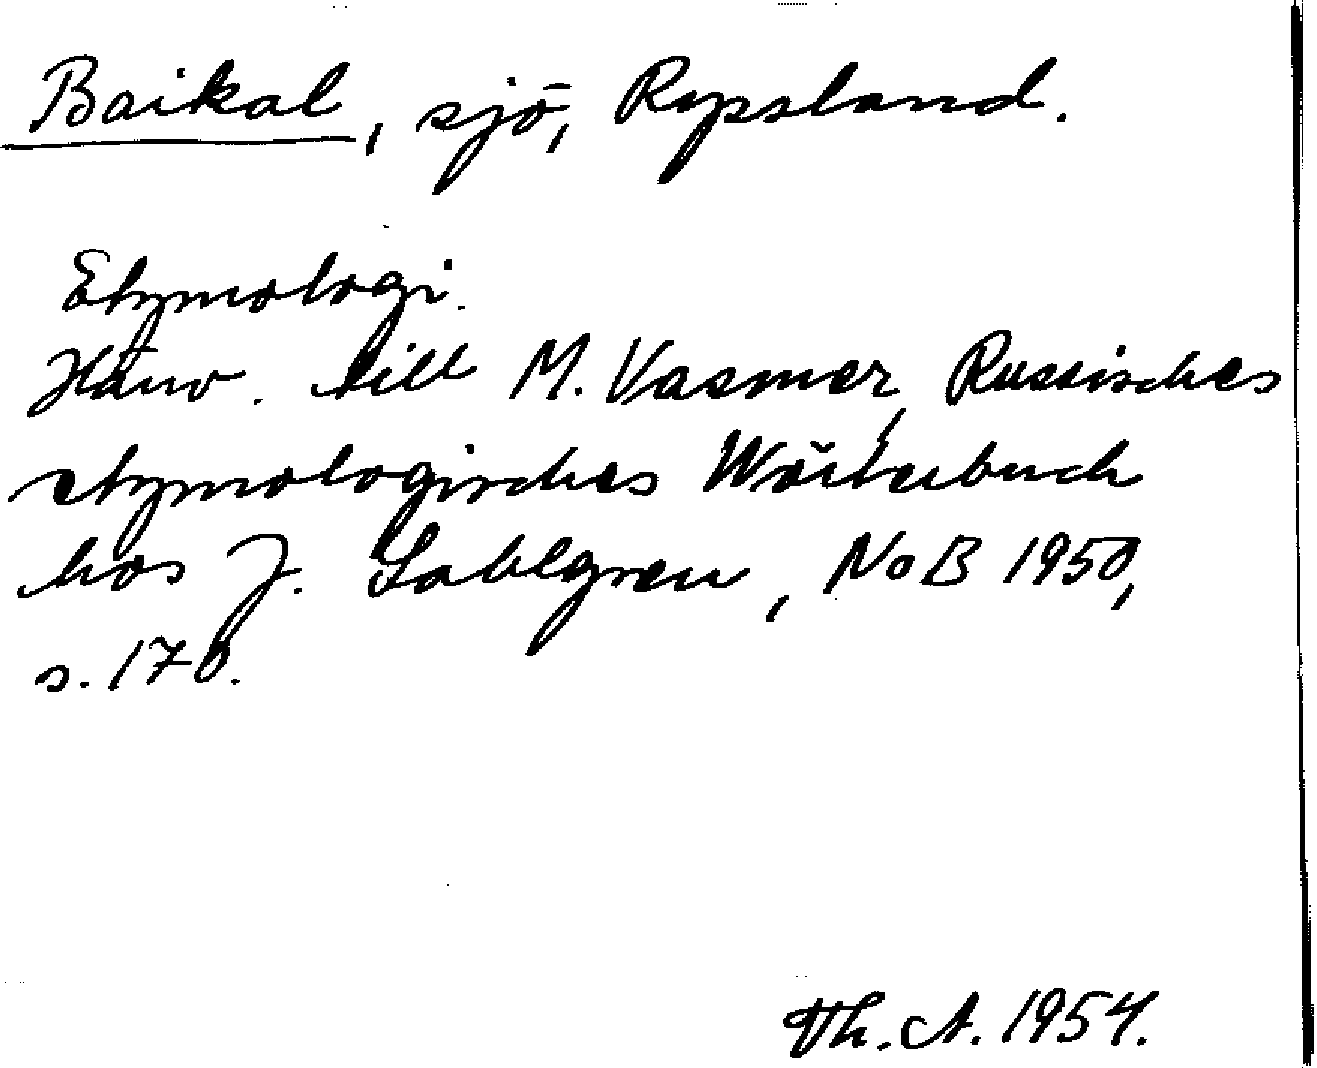 Baikal, sjö, Ryssland.
Etymologi.
Hänv. till M. Vasmer, Russisches
etymologisches Wörterbuch
hos J. Sahlgren, NoB 1950,
s. 170.
Th. A. 1954.